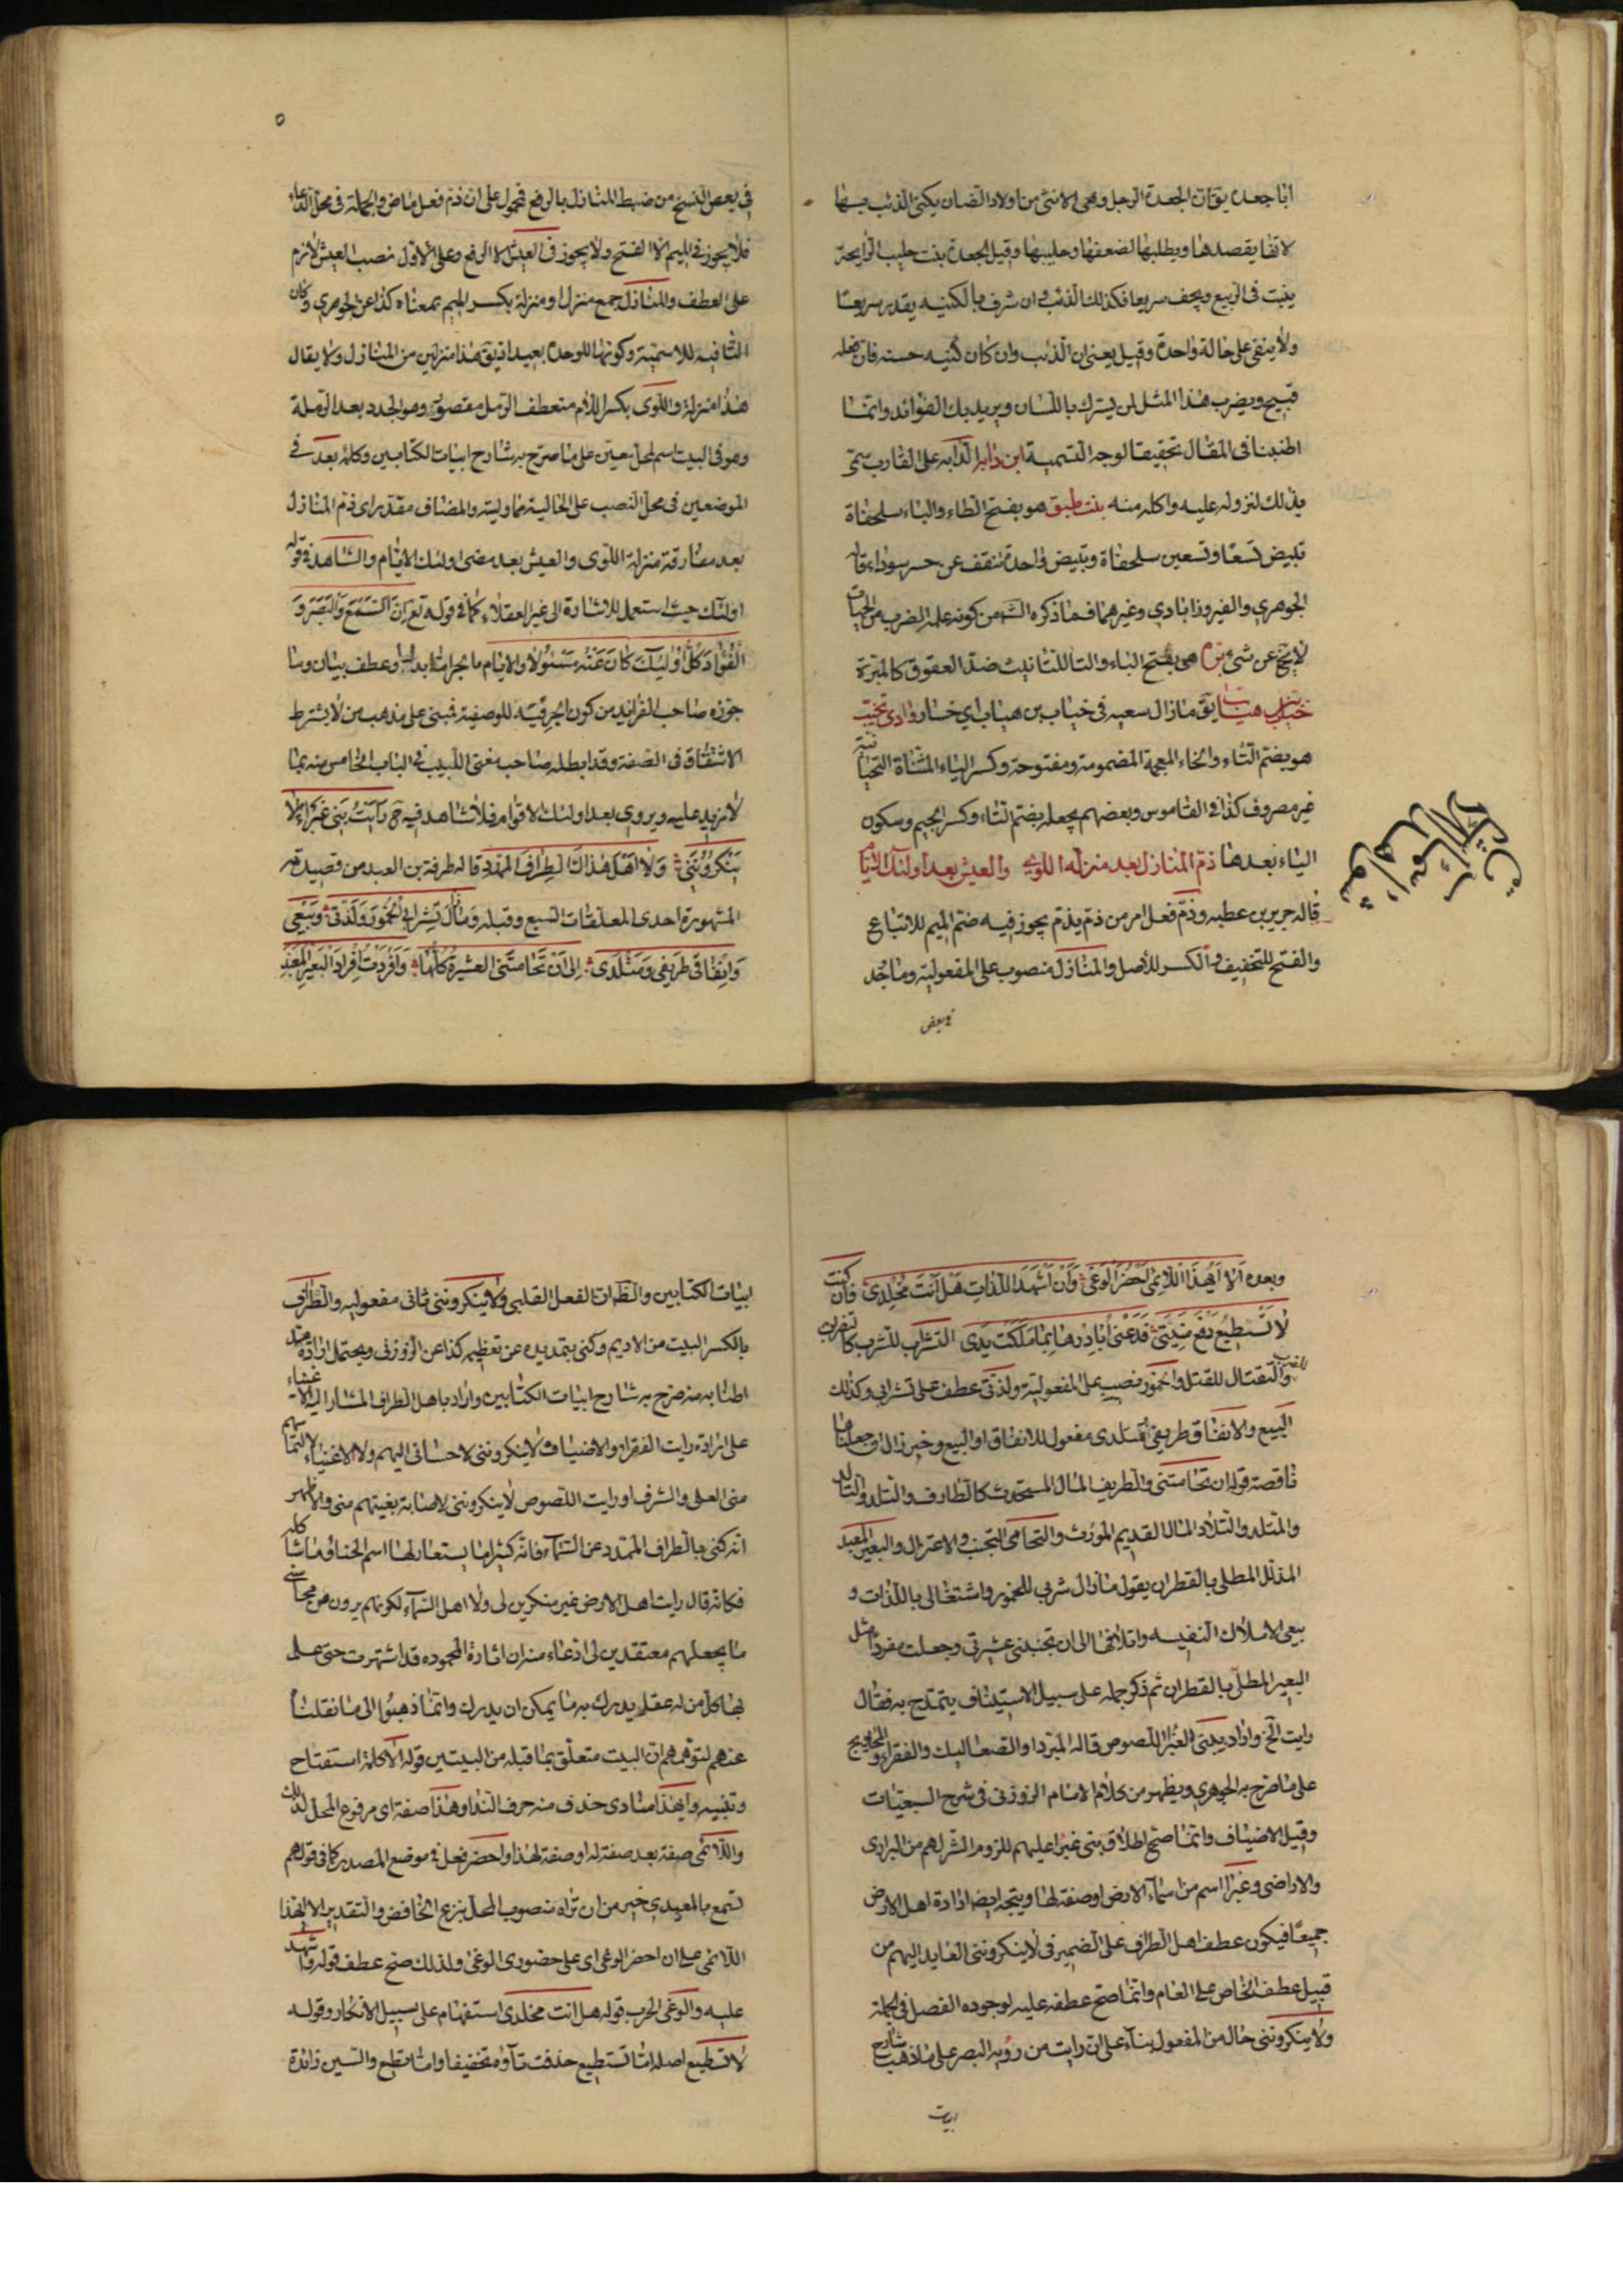 ابا جعدة يق ان الجعدة الرجل وهى الانثى من اولاد الضان يكنى الذئب بها
لانها يقصدها ويطلبها لضعفها وطيبها وقيل الجعدة بنت طيب الرايحة
ينبت فى الربيع ويجف سريعا فكذلك الذئب ان شرف بالكنيه يغدر سريعا
ولا يبقى على حالة واحدة وقيل يعنى ان الذئب وان كان كنيه حسنه فان فعله
قبيح ويضرب هذا المثل لمن يبرك باللسان ويريد بك الغوائد وانما
اطنبنا فى المقال تحقيقا لوجه التسمية ابن داير الدابه على الغارب سمى
بذلك لنزوله عليه واكله منه بنت طبق هو بفتح الطاء والباء سلحفاة
تبيض تسعا وتسعين سلحفاة وتبيض واحدة تنقف عن سوداء قاله
الجوهري والفيروزابادي وغيرهما فما ذكره الش من كونه علم لضرب من الحيات
لا ينبئ عن شئ برة هى بفتح الباء والتاء للتانيث ضد العقوق كالمبرة
خياب بن هياب يق مازال سعيه فى خياب بن هياب اي خسار وادى تخيب
هو بضم التاء والخاء المعجمة المضمومة ومفتوحة وكسر الياء المثناة التحتانية
غير مصروف كذا فى القاموس وبعضهم يجعله بضم التاء وكسر الجيم وسكون
الياء بعدها ذم المنازل بعد منزلة اللوى والعيش بعد اولئك الايام
قاله جرير بن عطيه وذم فعل امر من ذم يذم يجوز فيه ضم الميم للاتباع
والفتح للتخفيف والكسر للاصل والمنازل منصوب على المفعولية وما وجد
فى بعض
٥
فى بعض النسخ من ضبط المنازل بالرفع فمحمول على ان ذم فعل ماض والجملة فى محل الدعاء
فلا يجوز فى الميم الا الفتح ولا يجوز فى العيش الا الرفع وعلى الاول نصب العيش لازم
على العطف والمنازل جمع منزل او منزلة بكسر الميم بمعناه كذا عن الجوهري وكان
التا فيه للاسمية وكونها للوحدة بعيد اذ يق هذا منزلين من المنازل ولا يقال
هذا منزلة واللوى بكسر اللام منعطف الرمل مقصور وهو الجدد بعد الرملة
وهو فى البيت اسم لمحل معين على ما صرح به شارح ابيات الكتابين وكلمة بعد فى
الموضعين فى محل النصب على الحالية مما وليته والمضاف مقدر اى ذم المنازل
بعد مفارقة منزلة اللوى والعيش بعد مضى اولئك الايام والشاهد فى قوله
اولئك حيث استعمل للاشارة الى غير العقلاء كما فى قوله تع اِنَّ السَّمْعَ وَالْبَصَرَ وَ
الْفُؤادَ كُلُّ اُولئِكَ كانَ عَنْهُ مَسْئُولاً والايام مايجرا ما بدل او عطف بيان وما
جوزه صاحب الفرايد من كون الجر فيه للوصفية فمبنى على مذهب من لا يشترط
الاشتقاق فى الصفة وقد ابطله صاحب مغنى اللبيب فى الباب الخامس منه بما
لا مزيد عليه ويروى بعد اولئك الاقوام فلا شاهد فيه ح رَاَيْتُ بَنى غَبْراءَ لا
يُنْكِرُونَنى وَلا اَهْلُ هذاكَ الطِّرافِ المُمَدَّدِ قاله طرفة بن العبد من قصيدته
المشهورة احدى المعلقات السبع وقبله وَمازالَ تَشْرابى الْخُمُورَ وَلَذَّتى وَبَيْعى
وَاِنْفاقى طَريفى وَمُتْلَدى اِلى اَنْ تَحامَتْنى العشيرةُ كُلُّها وَاُفْرِدْتُ اِفْرادَ الْبَعيرِ الْمُعَبَّدِ
وبعده اَلا اَيُّهذَا اللائِمى اَحْضُرَ الْوَغى وَاَنْ اَشْهَدَ اللَّذاتِ هَلْ اَنْتَ مُخْلِدى فان كنت
لا تَسْطيعُ دَفْعَ مَنِيَّتى فَدَعْنى اُبادِرْها بِما مَلَكَتْ يَدى التشراب للشرب كالتضراب
للضرب والتقتال للقتل والخمور نصب على المفعولية ولذتى عطف على تشرابى وكذلك
البيع والانفاق وطريفى ومتلدى مفعول للانفاق او البيع وخبر زال ان جعلناها
ناقصة قوله ان تحامتنى والطريف المال المستحدث كالطارف والتلد والتالد
والمتلد والتلاد المال القديم الموروث والتحامى التجنب والاعتزال والبعير المعبد
المذلل المطلى بالقطران يقول مازال شربى للخمور واشتغالى باللذات و
بيعى الاملاك النفيسه واتلافها الى ان تجنبنى عشيرتى وجعلت مفردا مثل
البعير المطلى بالقطران ثم ذكر جمله على سبيل الاستيناف يتمدح به فقال
رايت الخ واراد ببنى الغبرا اللصوص قاله المبرد او الصعاليك والفقراء والمحاويج
على ما صرح به الجوهري ويظهر من كلام الامام الزوزنى فى شرح السبعيات
وقيل الاضياف وانما صح اطلاق بنى غبرا عليهم للزوم الشر لهم من البرارى
والاراضى وغبرا اسم من اسماء الارض او صفة لها ويتجه ايضا ارادة اهل الارض
جميعا فيكون عطف اهل الطراف على الضمير فى لا ينكروننى العايد اليهم من
قبيل عطف الخاص على العام وانما صح عطفه عليه لوجوده الفصل فى الجملة
ولا ينكروننى حال من المفعول بناء على ان رايت من رؤية البصر على ما ذهب شارح
ابيات
ابيات الكتابين والظ ان الفعل القلبى ولا ينكروننى ثانى مفعوليه والطراف
بالكسر البيت من الاديم وكنى بتمديده عن تعظيم كذا عن الزوزنى ويحتمل ارادة مد
اطنابه منه صرح به شارح ابيات الكتابين واراد باهل الطراف المشار اليه الاغنياء
على ارادة رايت الفقراء والاضياف لا ينكروننى لاحسانى اليهم ولا الاغنياء لالتماسهم
منى العلى والشرف او رايت اللصوص لا ينكروننى لاصابة بغيتهم منى والاظهر
انه كنى بالطراف الممدد عن السماء فانه كثيرا ما يستعار لها اسم الخباء وما شاكله
فكانه قال رايت اهل الارض غير منكرين لى ولا اهل السماء لكونهم يرون من محاسنى
ما يجعلهم معتقدين لى ادعاء منه ان اثارة المحموده قد اشتهرت حتى علم
بها كل من له عقل يدرك به ما يمكن ان يدرك وانما ذهبوا الى ما نقلنا
عنهم لتوهمهم ان البيت متعلق بما قبله من البيتين قوله الا كلمة استفتاح
وتنبيه وايهذا منادى حذف منه حرف الندا وهذا صفة اى مرفوع المحل لذلك
واللائمى صفة بعد صفة له او صفة لهذا واحضر فعل فى موضع المصدر كما فى قولهم
تسمع بالمعيدي خير من ان تراه منصوب المحل بنزع الخافض والتقدير الا ايهذا
اللائمى على ان احضر الوغى اى على حضورى الوغى ولذلك صح عطف قوله وان اشهد
عليه والوغى الحرب قوله هل انت مخلدى استفهام على سبيل الانكار وقوله
لا تسطيع اصله اما تستطيع حذفت تاؤه تخفيفا واما تطيع والسين زائدة